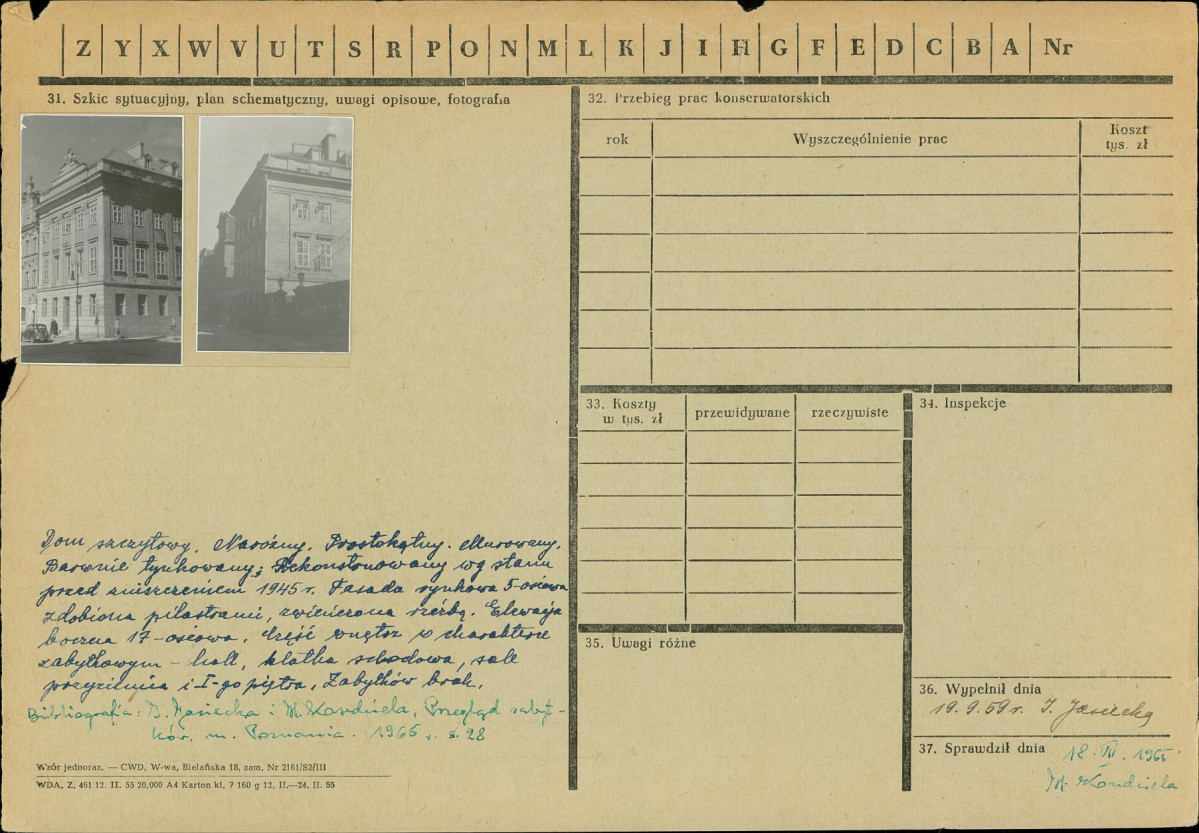 Z Y X W V U T S R P O N M L K J I H G F E D C B A Nr
31. Szkic sytuacyjny, plan schematyczny, uwagi opisowe, fotografia
Dom szczytowy. Narożny. Prostokątny. Murowany.
Barwnie tynkowany; Rekonstruowany wg stanu
przed zniszczeniem 1945 r. Fasada rynkowa 5-osiowa
zdobiona pilastrami, zwieńczona rzeźbą. Elewacja
boczna 17-osiowa. Część wnętrz o charakterze
zabytkowym – hall, klatka schodowa, sale
przyziemia i I-go piętra. Zabytków brak.
Bibliografia: I. Jasiecka i M. Kondziela, Przegląd zabyt-
ków m. Poznania. 1965 r. s. 28
Wzór jednoraz. — CWD, W-wa, Bielańska 18, zam. Nr 2161/S2/III
WDA. Z. 461 12. II. 55 20,000 A4 Karton kl. 7 160 g 12. II.—24. II. 55
32. Przebieg prac konserwatorskich
rok
Wyszczególnienie prac
Koszt
tys. zł
33. Koszty
w tys. zł
przewidywane
rzeczywiste
34. Inspekcje
35. Uwagi różne
36. Wypełnił dnia
19. 9. 59 r. I. Jasiecka
37. Sprawdził dnia
18. 1965
M. Kondziela